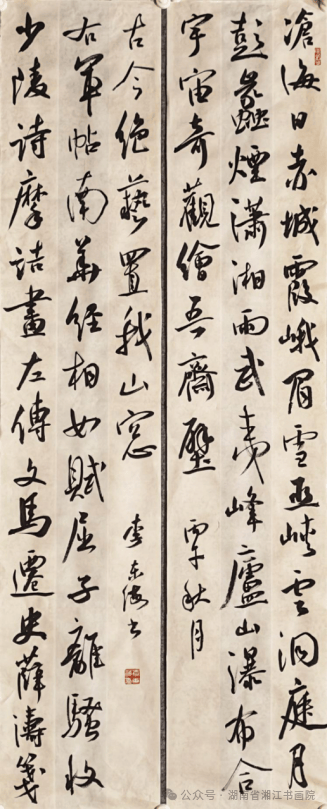 滄海日赤城霞峨眉雪巫峽雲洞庭月
彭蠡煙瀟湘雨武夷峰廬山瀑布合
宇宙奇觀繪吾齋壁
丙午秋月
少陵詩摩詰畫左傳文馬遷史薛濤箋
右軍帖南華經相如賦屈子離騷收
古今絕藝置我山窗
李
公众号 · 湖南省湘江书画院